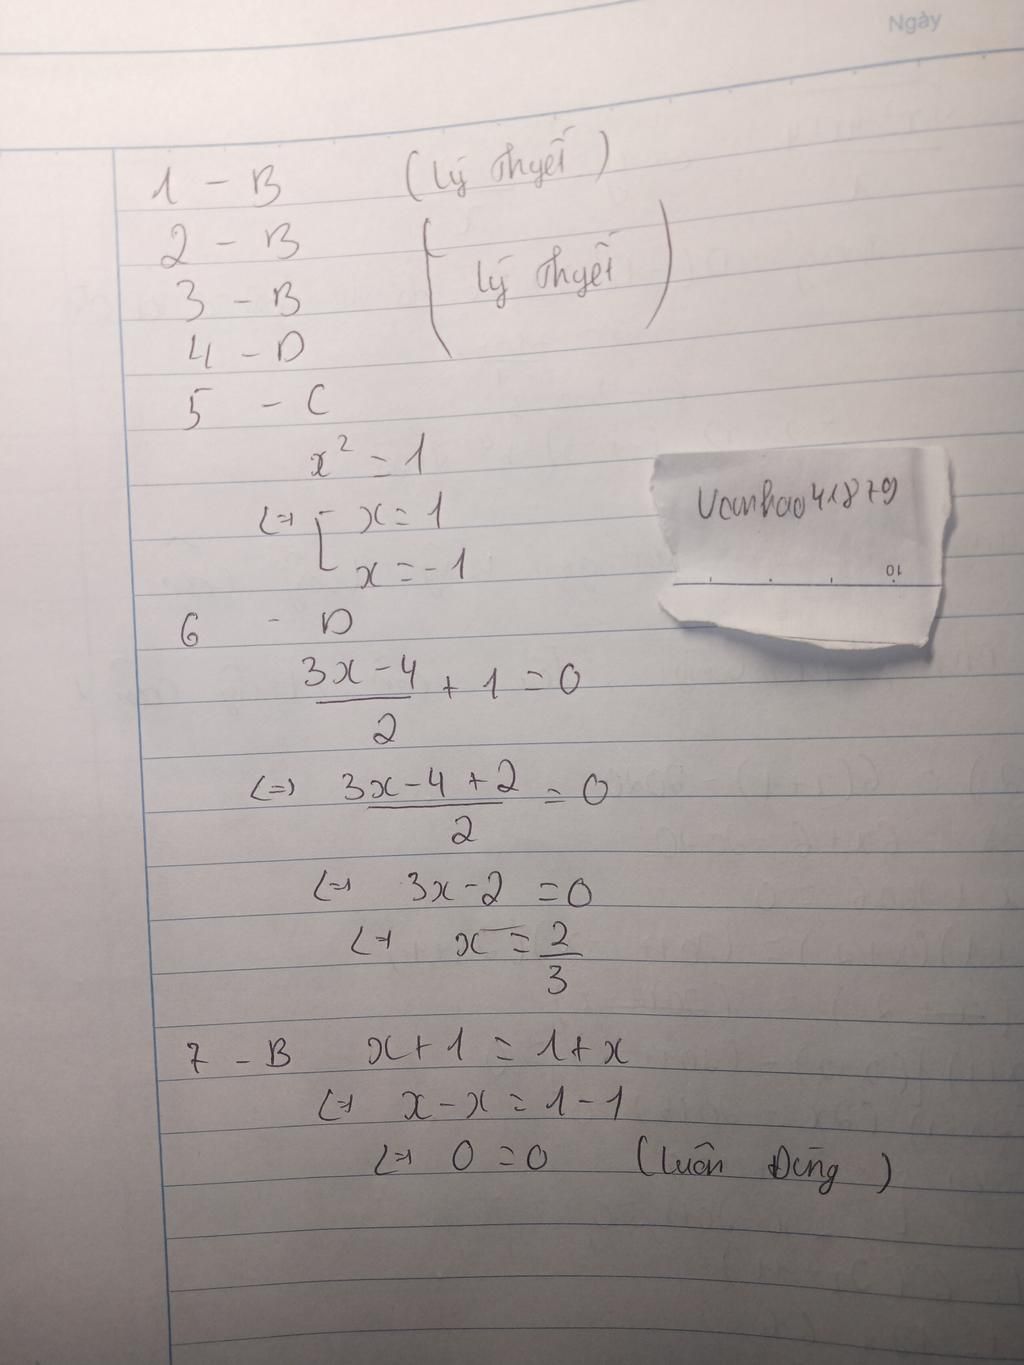 Ngày
1 - B (Lý Thyết)
2 - B
3 - B (Lý Thyết)
4 - D
5 - C
x² = 1
<=> [ x = 1
x = -1
Vanhao41879
10
6 - D
(3x - 4)/2 + 1 = 0
<=> (3x - 4 + 2)/2 = 0
<=> 3x - 2 = 0
<=> x = 2/3
7 - B x + 1 = 1 + x
<=> x - x = 1 - 1
<=> 0 = 0 (Luôn Đúng)